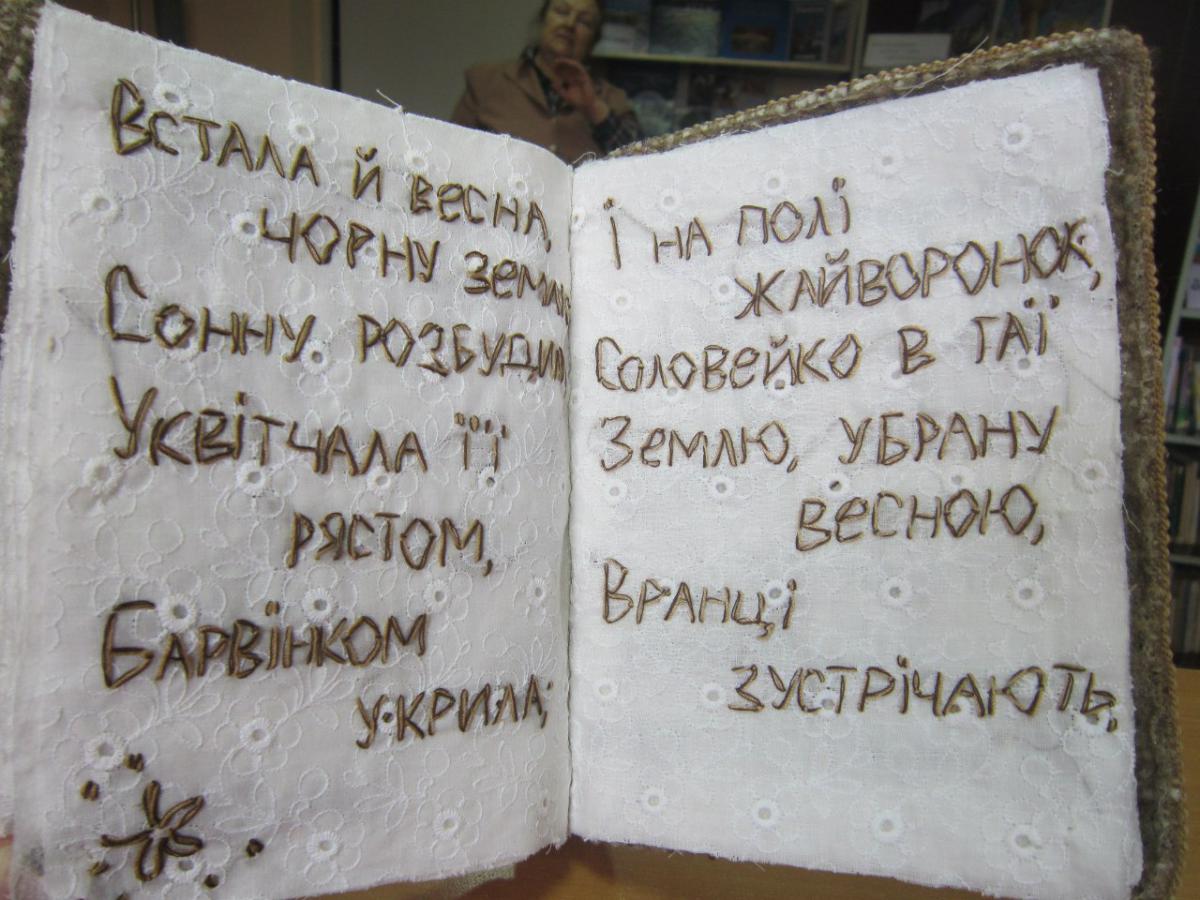 Встала й весна,
чорну землю
Сонну розбудила
Уквітчала її
рястом,
Барвінком
укрила;
І на полі
жайворонок,
Соловейко в гаї
Землю, убрану
весною,
Вранці
зустрічають,